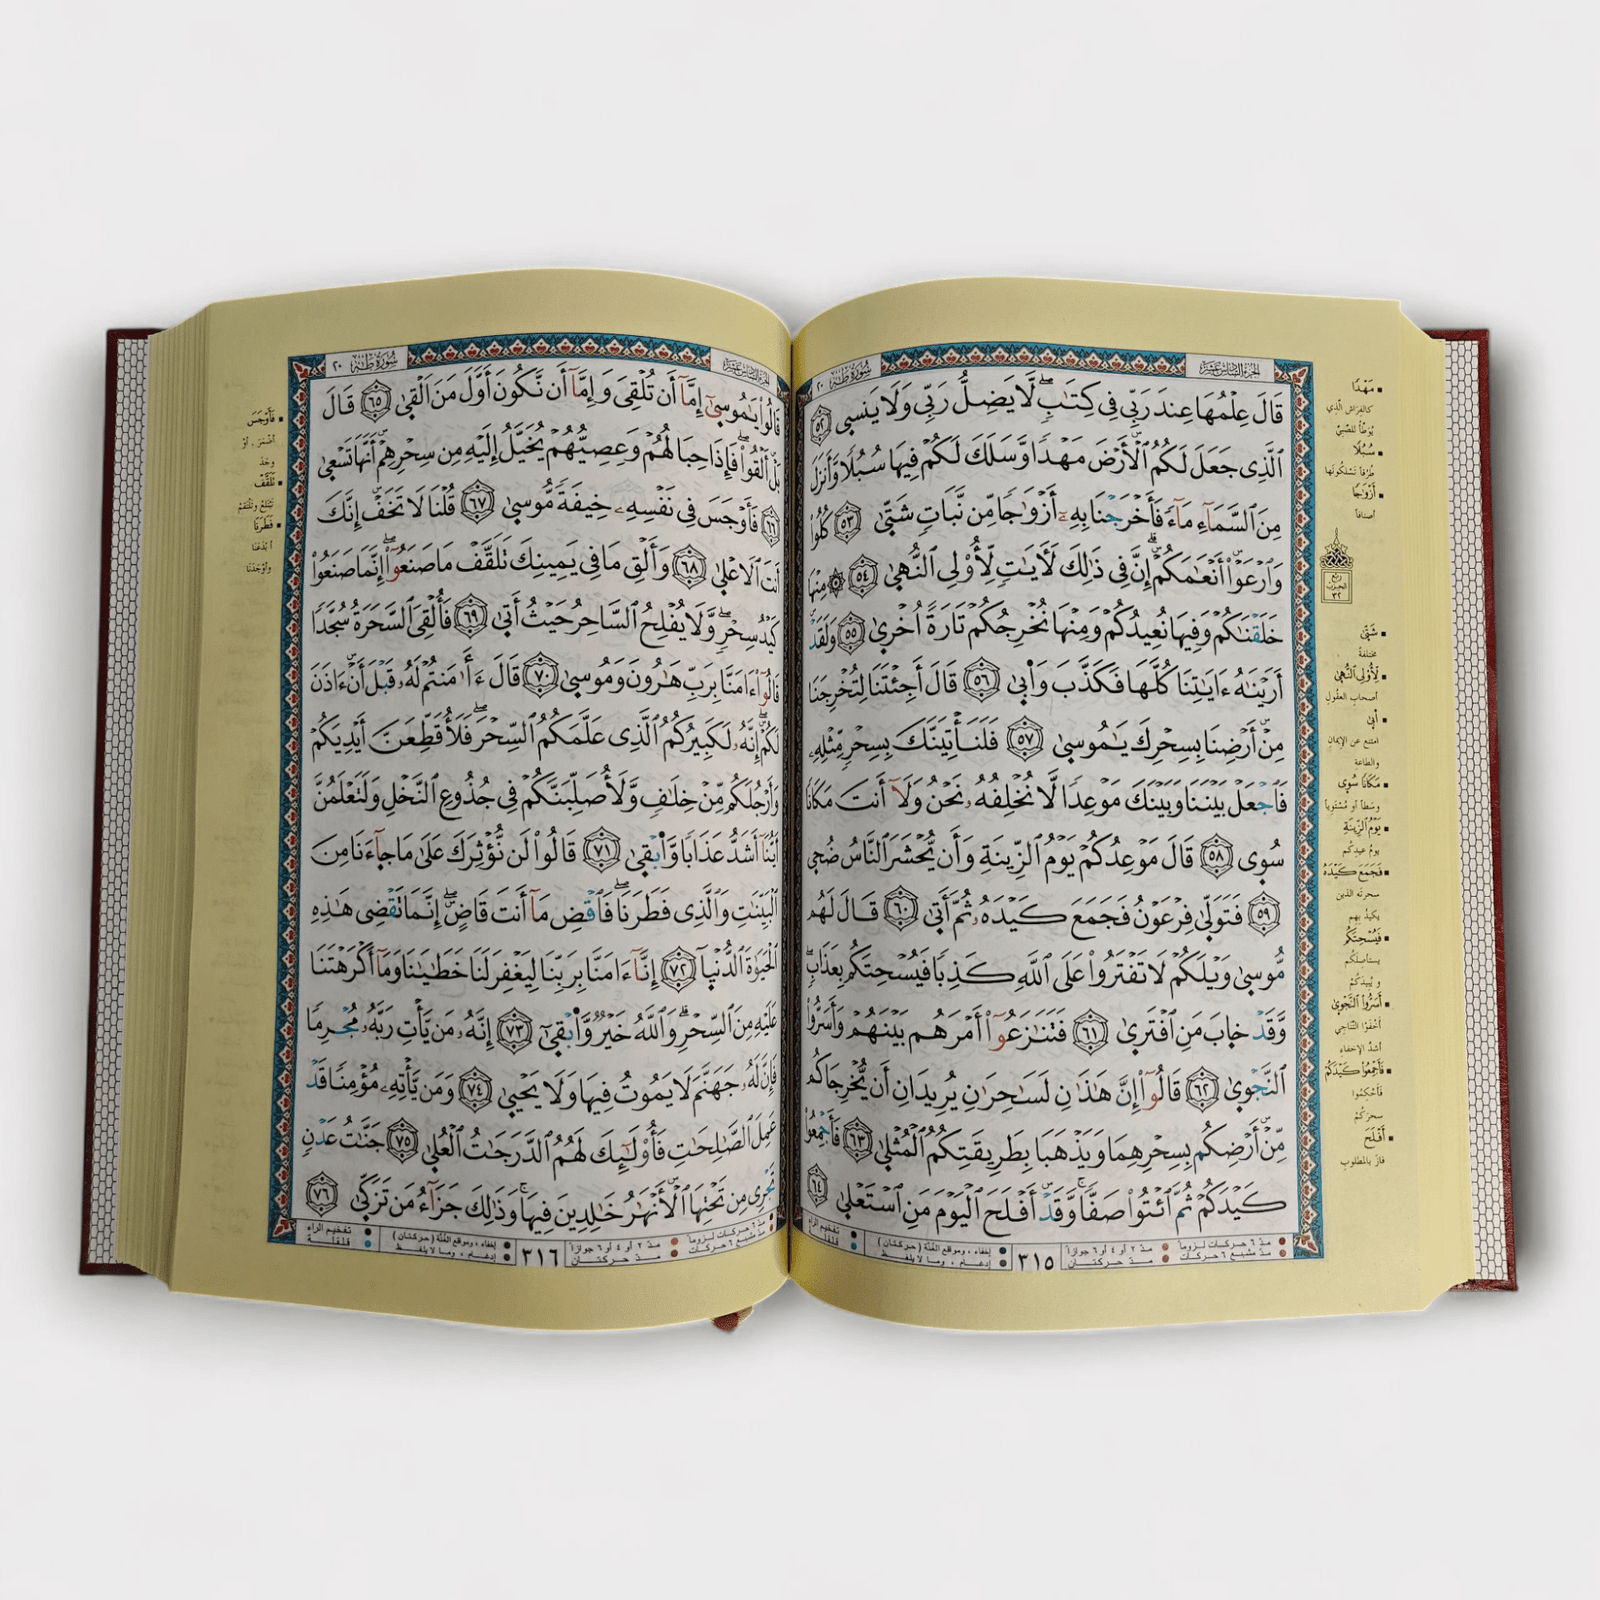 سُورَةُ طه ٢٠
الجزء السادس عشر
قَالَ عِلْمُهَا عِندَ رَبِّى فِى كِتَٰبٍ ۖ لَّا يَضِلُّ رَبِّى وَلَا يَنسَى ٥٢
ٱلَّذِى جَعَلَ لَكُمُ ٱلْأَرْضَ مَهْدًا وَسَلَكَ لَكُمْ فِيهَا سُبُلًا وَأَنزَلَ
مِنَ ٱلسَّمَآءِ مَآءً فَأَخْرَجْنَا بِهِۦٓ أَزْوَٰجًا مِّن نَّبَاتٍ شَتَّىٰ ٥٣ كُلُوا۟
وَٱرْعَوْا۟ أَنْعَٰمَكُمْ ۗ إِنَّ فِى ذَٰلِكَ لَـَٔايَٰتٍ لِّأُو۟لِى ٱلنُّهَىٰ ٥٤ ۞ مِنْهَا
خَلَقْنَٰكُمْ وَفِيهَا نُعِيدُكُمْ وَمِنْهَا نُخْرِجُكُمْ تَارَةً أُخْرَىٰ ٥٥ وَلَقَدْ
أَرَيْنَٰهُ ءَايَٰتِنَا كُلَّهَا فَكَذَّبَ وَأَبَىٰ ٥٦ قَالَ أَجِئْتَنَا لِتُخْرِجَنَا
مِنْ أَرْضِنَا بِسِحْرِكَ يَٰمُوسَىٰ ٥٧ فَلَنَأْتِيَنَّكَ بِسِحْرٍ مِّثْلِهِۦ
فَٱجْعَلْ بَيْنَنَا وَبَيْنَكَ مَوْعِدًا لَّا نُخْلِفُهُۥ نَحْنُ وَلَآ أَنتَ مَكَانًا
سُوًى ٥٨ قَالَ مَوْعِدُكُمْ يَوْمُ ٱلزِّينَةِ وَأَن يُحْشَرَ ٱلنَّاسُ ضُحًى
٥٩ فَتَوَلَّىٰ فِرْعَوْنُ فَجَمَعَ كَيْدَهُۥ ثُمَّ أَتَىٰ ٦٠ قَالَ لَهُم
مُّوسَىٰ وَيْلَكُمْ لَا تَفْتَرُوا۟ عَلَى ٱللَّهِ كَذِبًا فَيُسْحِتَكُم بِعَذَابٍ ۖ
وَقَدْ خَابَ مَنِ ٱفْتَرَىٰ ٦١ فَتَنَٰزَعُوٓا۟ أَمْرَهُم بَيْنَهُمْ وَأَسَرُّوا۟
ٱلنَّجْوَىٰ ٦٢ قَالُوٓا۟ إِنْ هَٰذَٰنِ لَسَٰحِرَٰنِ يُرِيدَانِ أَن يُخْرِجَاكُم
مِّنْ أَرْضِكُم بِسِحْرِهِمَا وَيَذْهَبَا بِطَرِيقَتِكُمُ ٱلْمُثْلَىٰ ٦٣ فَأَجْمِعُوا۟
كَيْدَكُمْ ثُمَّ ٱئْتُوا۟ صَفًّا ۚ وَقَدْ أَفْلَحَ ٱلْيَوْمَ مَنِ ٱسْتَعْلَىٰ ٦٤
مدّ ٦ حركات لزوماً مدّ ٢ أو ٤ أو ٦ جوازاً
مدّ مشبع ٦ حركات مدّ حركتان
٣١٥
إخفاء، ومواقع الغُنَّة (حركتان) تفخيم الراء
إدغام، وما لا يُلفظ قلقلة
مَهْدًا
كالفِراش الّذي
يُوَطَّأُ للصَّبيّ
سُبُلًا
طُرُقاً تَسْلُكونَها
أَزْوَٰجًا
أصنافاً
ربع
الحزب
٣٢
شَتَّىٰ
مختلفةً
لِأُو۟لِى ٱلنُّهَىٰ
أصحابِ العقُولِ
أَبَىٰ
امتنع عن الإيمانِ
والطاعةِ
مَكَانًا سُوًى
وسَطاً أو مُسْتَوِياً
يَوْمُ ٱلزِّينَةِ
يومُ عيدِكُم
فَجَمَعَ كَيْدَهُ
سحرتَه الذين
يكيدُ بهم
فَيُسْحِتَكُم
يستأصِلَكُم
ويُبيدَكُمْ
أَسَرُّوا۟ ٱلنَّجْوَىٰ
أخْفَوْا التّناجي
أشدَّ الإخفاءِ
فَأَجْمِعُوا۟ كَيْدَكُمْ
فأحْكِمُوا
سحرَكُمْ
أَفْلَحَ
فازَ بالمطلوبِ
الجزء السادس عشر
سُورَةُ طه ٢٠
قَالُوا۟ يَٰمُوسَىٰٓ إِمَّآ أَن تُلْقِىَ وَإِمَّآ أَن نَّكُونَ أَوَّلَ مَنْ أَلْقَىٰ ٦٥ قَالَ
بَلْ أَلْقُوا۟ ۖ فَإِذَا حِبَالُهُمْ وَعِصِيُّهُمْ يُخَيَّلُ إِلَيْهِ مِن سِحْرِهِمْ أَنَّهَا تَسْعَىٰ
٦٦ فَأَوْجَسَ فِى نَفْسِهِۦ خِيفَةً مُّوسَىٰ ٦٧ قُلْنَا لَا تَخَفْ إِنَّكَ
أَنتَ ٱلْأَعْلَىٰ ٦٨ وَأَلْقِ مَا فِى يَمِينِكَ تَلْقَفْ مَا صَنَعُوٓا۟ ۖ إِنَّمَا صَنَعُوا۟
كَيْدُ سَٰحِرٍ ۖ وَلَا يُفْلِحُ ٱلسَّاحِرُ حَيْثُ أَتَىٰ ٦٩ فَأُلْقِىَ ٱلسَّحَرَةُ سُجَّدًا
قَالُوٓا۟ ءَامَنَّا بِرَبِّ هَٰرُونَ وَمُوسَىٰ ٧٠ قَالَ ءَامَنتُمْ لَهُۥ قَبْلَ أَنْ ءَاذَنَ
لَكُمْ ۖ إِنَّهُۥ لَكَبِيرُكُمُ ٱلَّذِى عَلَّمَكُمُ ٱلسِّحْرَ ۖ فَلَأُقَطِّعَنَّ أَيْدِيَكُمْ
وَأَرْجُلَكُم مِّنْ خِلَٰفٍ وَلَأُصَلِّبَنَّكُمْ فِى جُذُوعِ ٱلنَّخْلِ وَلَتَعْلَمُنَّ
أَيُّنَآ أَشَدُّ عَذَابًا وَأَبْقَىٰ ٧١ قَالُوا۟ لَن نُّؤْثِرَكَ عَلَىٰ مَا جَآءَنَا مِنَ
ٱلْبَيِّنَٰتِ وَٱلَّذِى فَطَرَنَا ۖ فَٱقْضِ مَآ أَنتَ قَاضٍ ۖ إِنَّمَا تَقْضِى هَٰذِهِ
ٱلْحَيَوٰةَ ٱلدُّنْيَآ ٧٢ إِنَّآ ءَامَنَّا بِرَبِّنَا لِيَغْفِرَ لَنَا خَطَٰيَٰنَا وَمَآ أَكْرَهْتَنَا
عَلَيْهِ مِنَ ٱلسِّحْرِ ۗ وَٱللَّهُ خَيْرٌ وَأَبْقَىٰٓ ٧٣ إِنَّهُۥ مَن يَأْتِ رَبَّهُۥ مُجْرِمًا
فَإِنَّ لَهُۥ جَهَنَّمَ لَا يَمُوتُ فِيهَا وَلَا يَحْيَىٰ ٧٤ وَمَن يَأْتِهِۦ مُؤْمِنًا قَدْ
عَمِلَ ٱلصَّٰلِحَٰتِ فَأُو۟لَٰٓئِكَ لَهُمُ ٱلدَّرَجَٰتُ ٱلْعُلَىٰ ٧٥ جَنَّٰتُ عَدْنٍ
تَجْرِى مِن تَحْتِهَا ٱلْأَنْهَٰرُ خَٰلِدِينَ فِيهَا ۚ وَذَٰلِكَ جَزَآءُ مَن تَزَكَّىٰ ٧٦
مدّ ٦ حركات لزوماً مدّ ٢ أو ٤ أو ٦ جوازاً
مدّ مشبع ٦ حركات مدّ حركتان
٣١٦
إخفاء، ومواقع الغُنَّة (حركتان) تفخيم الراء
إدغام، وما لا يُلفظ قلقلة
فَأَوْجَسَ
أضْمَرَ، أوْ
وجَدَ
تَلْقَفْ
تَبْتَلِعْ وتَلْتَقِمْ
فَطَرَنَا
أبْدَعَنا
وأوْجَدَنَا